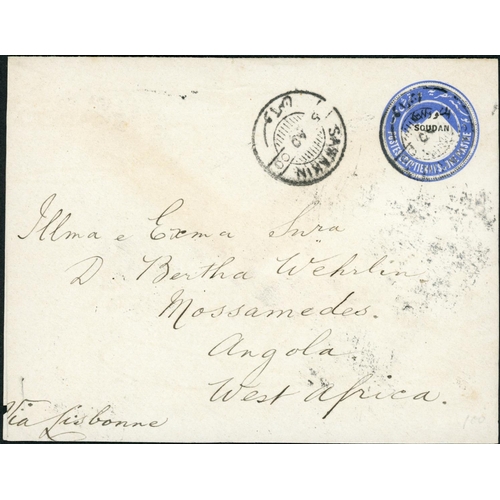 SAWAKIN
SOUDAN
POSTES EGYPTIENNES
Illma e Exma Snra
D. Bertha Wehrlin
Mossamedes.
Angola
West Africa.
Via Lisbonne
100